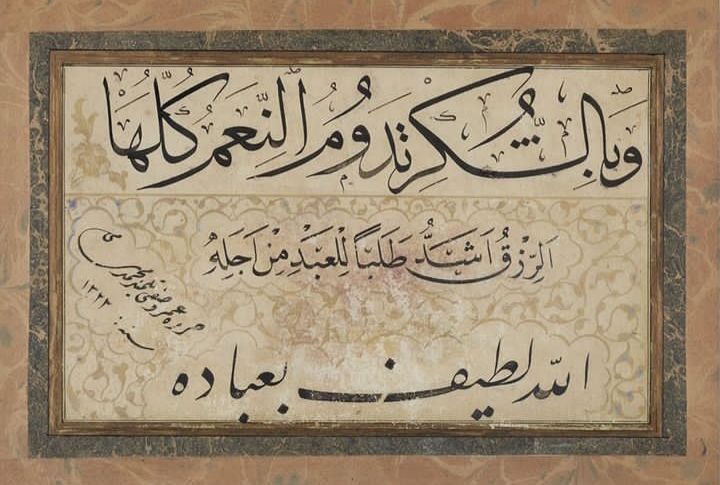 وَبِالشُّكْرِ تَدُومُ النِّعَمُ كُلُّهَا
اَلرِّزْقُ اَشَدُّ طَلَبًا لِلْعَبْدِ مِنْ اَجَلِهِ
الله لطيف بعباده
سنه ١٣٢٢